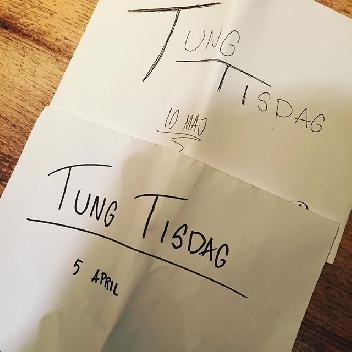 TUNG
TISDAG
10 MAJ
TUNG TISDAG
5 APRIL